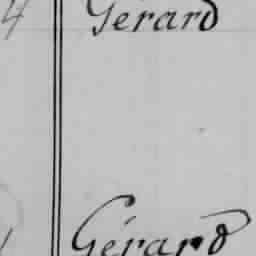 4 Gerard
Gérard